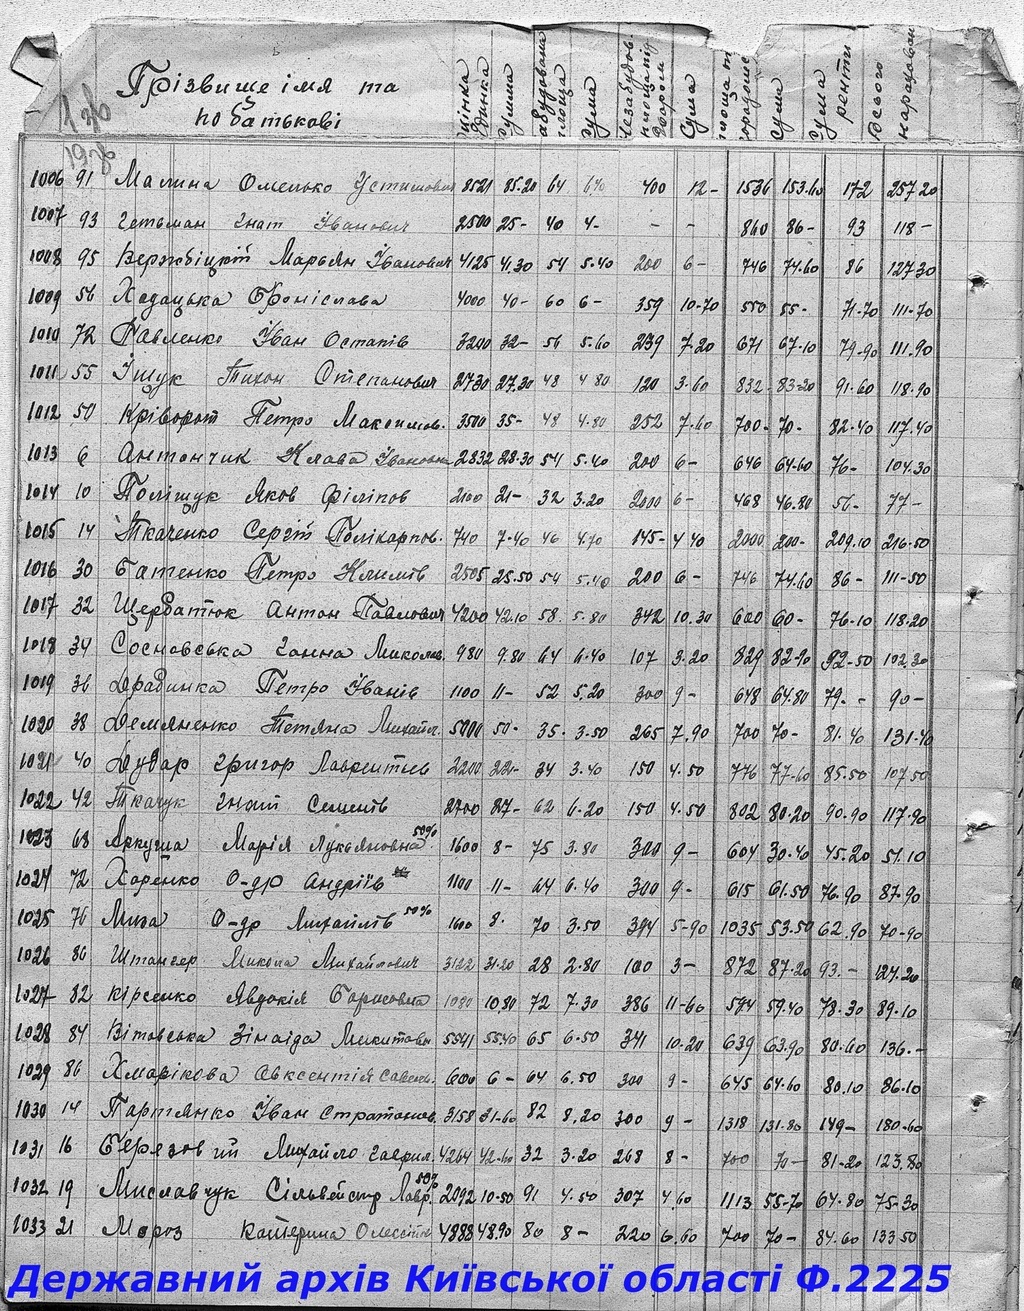 Прізвище імя та
по батькові
Сума
Сума
Сума
Сума ренти
Всього нарахован
136
1006 91 Малина Омелько Устимович 8521 85.20 64 400 12- 1536 153.60 172 257.20
1007 93 Гетьман Гнат Іванович 2500 25- 40 4- - - 860 86- 93 118-
1008 95 Вержбіцкій Марьян Іванович 4125 41.30 54 5.40 200 6- 746 74.60 86 127.30
1009 56 Ходацька Броніслава 4000 40- 60 6- 359 10-70 550 55- 71-70 111-70
1010 72 Павленко Іван Остапів 3200 32- 56 5.60 239 7.20 671 67-10 79.90 111.90
1011 55 Іщук Тихон Степанович 2730 27.30 48 4.80 120 3.60 832 83-20 91-60 118.90
1012 50 Кріворот Петро Максимов. 3500 35- 48 4.80 252 7.60 700- 70- 82.40 117.40
1013 6 Антончик Клава Івановна 2832 28-30 54 5.40 200 6- 646 64.60 76- 104.30
1014 10 Поліщук Яков Філіпов 2100 21- 32 3.20 2000 6- 468 46.80 56- 77-
1015 14 Ткаченко Сергій Полікарпов. 740 7-40 46 145- 4 40 2000 200- 209.10 216-50
1016 30 Батенко Петро Климів 2505 25.50 54 5.40 200 6- 746 74.60 86- 111-50
1017 32 Щербатюк Антон Павлович 4200 42.10 58. 5.80 342 10.30 600 60- 76-10 118.20
1018 34 Сосновська Ганна Миколав. 980 9.80 64 6.40 107 3.20 829 82-90 92-50 102.30
1019 36 Драбинка Петро Іванів 1100 11- 52 5.20 300 9- 648 64.80 79.- 90-
1020 38 Демяненко Тетяна Михайл. 5000 50- 35. 3-50 265 7.90 700 70- 81.40 131-40
1021 40 Дудар Григор Лаврентіев 2200 22- 34 3.40 150 4.50 776 77-60 85.50 107.50
1022 42 Ткачук Гнат Семенів 2700 27- 62 6.20 150 4.50 802 80.20 90.90 117.90
1023 68 Аркуша Марія Лукьяновна 50% 1600 8- 75 3.80 300 9- 604 30.40 45.20 51.10
1024 72 Харенко О-др Андріїв 1100 11- 64 6.40 300 9- 615 61.50 76.90 87.90
1025 76 О-др Михайлів 50% 1600 8. 70 3.50 394 5-90 1035 53.50 62.90 70-90
1026 80 Штангер Микола Михайлович 3122 31.20 28 2.80 100 3- 872 87.20 93.- 124.20
1027 82 Кірєєнко Явдокія Борисовна 10.80 72 7.30 386 11-60 594 59.40 78.30 89.10
1028 84 Вітовська Зінаіда Микитовн 5541 55.40 65 6.50 341 10.20 639 63.90 80.60 136.-
1029 86 Хмарікова Авксентія Савел. 600 6- 64 6.50 300 9- 645 64.60 80.10 86.10
1030 14 Партянко Іван Стратонов. 3158 31-60 82 8.20 300 9- 1318 131.80 149- 180-60
1031 16 Березовий Михайло Гаврил. 4264 42-60 32 3.20 268 8- 700 70- 81-20 123.80
1032 19 Миславчук Сільвейстр Лавр. 50% 2092 10-50 91 4.50 307 4.60 1113 55-70 64.80 75-30
1033 21 Мороз Катерина 4888 48.90 80 8- 220 6.60 700 70- 84.60 133.50
Державний архів Київської області Ф.2225